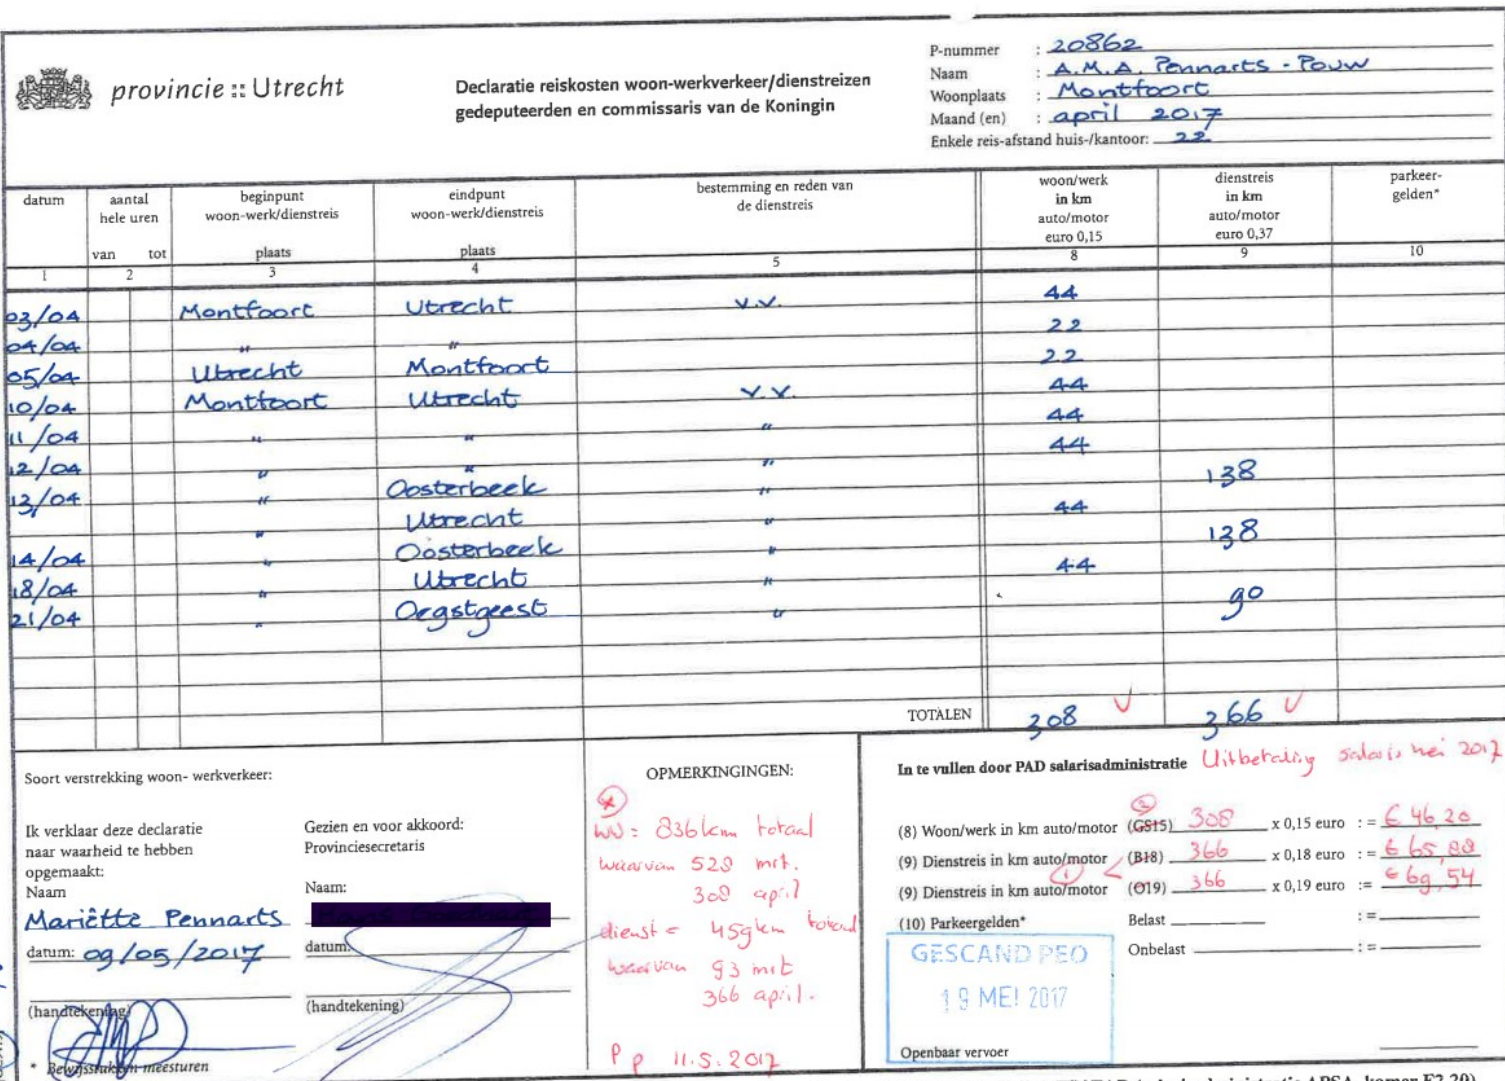 provincie :: Utrecht
Declaratie reiskosten woon-werkverkeer/dienstreizen
gedeputeerden en commissaris van de Koningin
P-nummer : 20862
Naam : A.M.A. Pennarts - Pouw
Woonplaats : Montfoort
Maand (en) : april 2017
Enkele reis-afstand huis-/kantoor: 22
datum aantal hele uren van tot beginpunt woon-werk/dienstreis plaats eindpunt woon-werk/dienstreis plaats bestemming en reden van de dienstreis woon/werk in km auto/motor euro 0,15 dienstreis in km auto/motor euro 0,37 parkeer-gelden*
1 2 3 4 5 8 9 10
03/04 Montfoort Utrecht v.v. 44
04/04 " " 22
05/04 Utrecht Montfoort 22
10/04 Montfoort Utrecht v.v. 44
11/04 " " " 44
12/04 " " " 44
13/04 " Oosterbeek " 138
" Utrecht " 44
14/04 " Oosterbeek " 138
18/04 " Utrecht " 44
21/04 " Oegstgeest " 90
TOTALEN 308 366
Soort verstrekking woon- werkverkeer:
Ik verklaar deze declaratie
naar waarheid te hebben
opgemaakt:
Naam
Mariëtte Pennarts
datum: 09/05/2017
(handtekening)
* Bewijsstukken meesturen
Gezien en voor akkoord:
Provinciesecretaris
Naam:
datum:
(handtekening)
OPMERKINGINGEN:
WW = 836 km totaal
waarvan 528 mrt.
308 april
dienst = 459 km totaal
waarvan 93 mrt
366 april.
11.5.2017
In te vullen door PAD salarisadministratie Uitbetaling salaris mei 2017
(8) Woon/werk in km auto/motor (GS15) 308 x 0,15 euro : = € 46,20
(9) Dienstreis in km auto/motor (B18) 366 x 0,18 euro : = € 65,88
(9) Dienstreis in km auto/motor (O19) 366 x 0,19 euro := € 69,54
(10) Parkeergelden* Belast : =
Onbelast : =
GESCAND PEO
19 MEI 2017
Openbaar vervoer